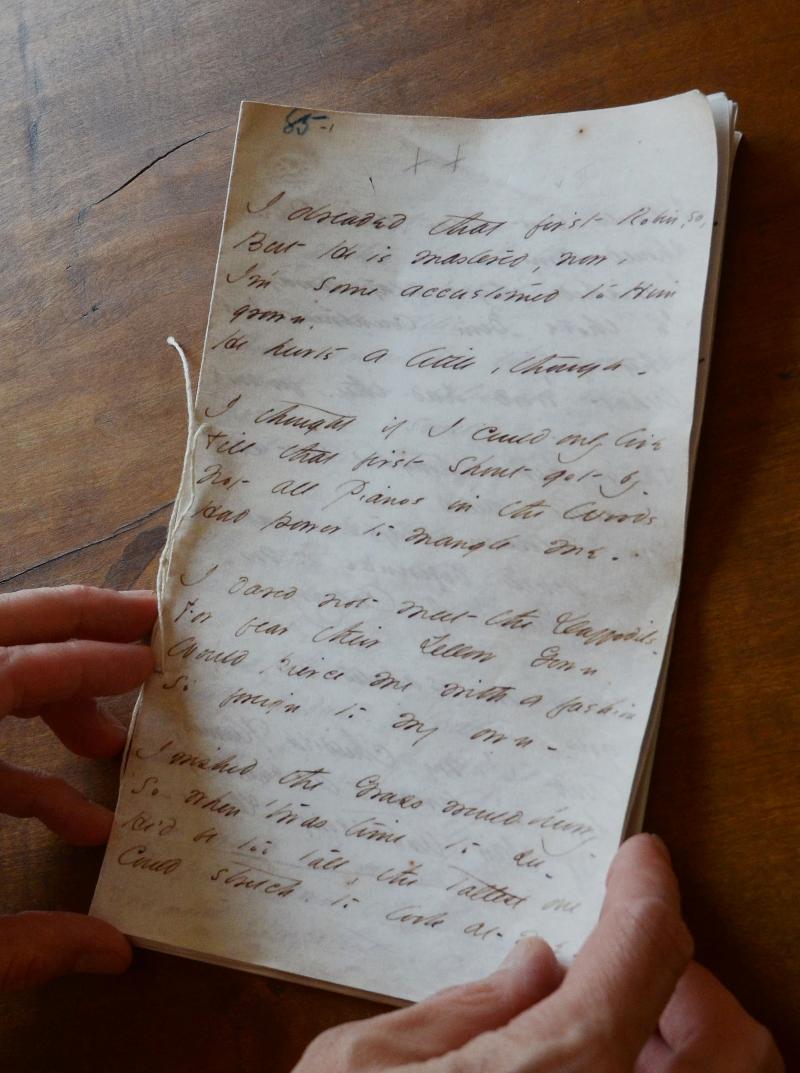 85-1
++
I dreaded that first Robin, so,
But He is mastered, now,
I'm some accustomed to Him
grown,
He hurts a little, though -
I thought if I could only live
till that first Shout got by -
Not all Pianos in the Woods
Had power to mangle me -
I dared not meet the Daffodils -
For fear their Yellow Gown
Would pierce me with a fashion
So foreign to my own -
I wished the Grass would hurry
So when 'twas time to see -
He'd be too tall, the tallest one
Could stretch to look at